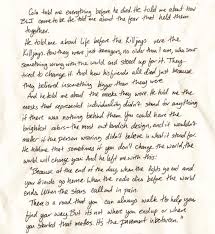 Cola told me everything before he died. He told me about how
BLI came to be. He told me about the fear that held them
together.
He told me about life before the Killjoys were the
Killjoys. How they were just teenagers, no older than I am, who saw
something wrong with the world and stood up for it. They
tried to change it. And how his friends all died just because
they believed something bigger than they were.
And he told me about the masks they wore. He told me the
masks that represented individuality didn't stand for anything
if there was nothing behind them. You could have the
brightest colors the most out landish design, and it wouldn't
matter if the person wearing didn't believe in what it stood for
He told me that sometimes if you don't change the world, the
world will change you And he left me with this:
"Because at the end of the day when the lights go out and
you friends go home. When the radio dies before the world
ends. When the stars call out in pain.
There is a road that you can always walk to help you
find your way. But its not where you end up or where
you started that matters. It's the pavement inbetween."